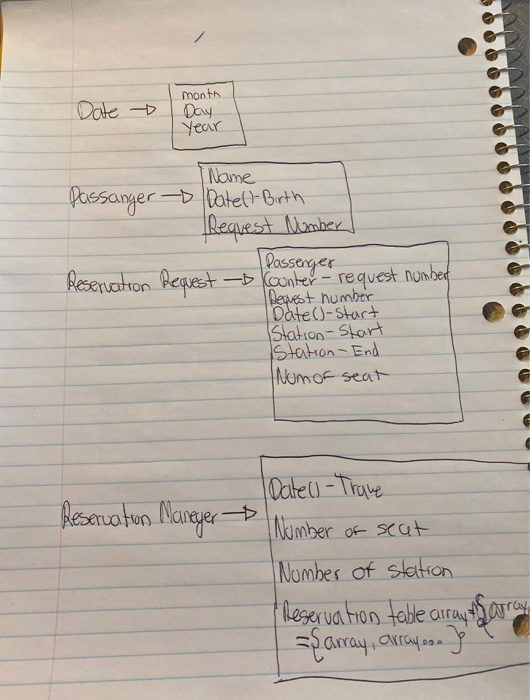 Date → month
Day
Year
Passanger → Name
Date()-Birth
Request Number
Reservation Request → Passenger
Counter - request number
Request number
Date()-Start
Station-Start
Station-End
Num of seat
Reservation Maneger → Date()-Trave
Number of seat
Number of station
Reservation table array*{array
={array, array...}